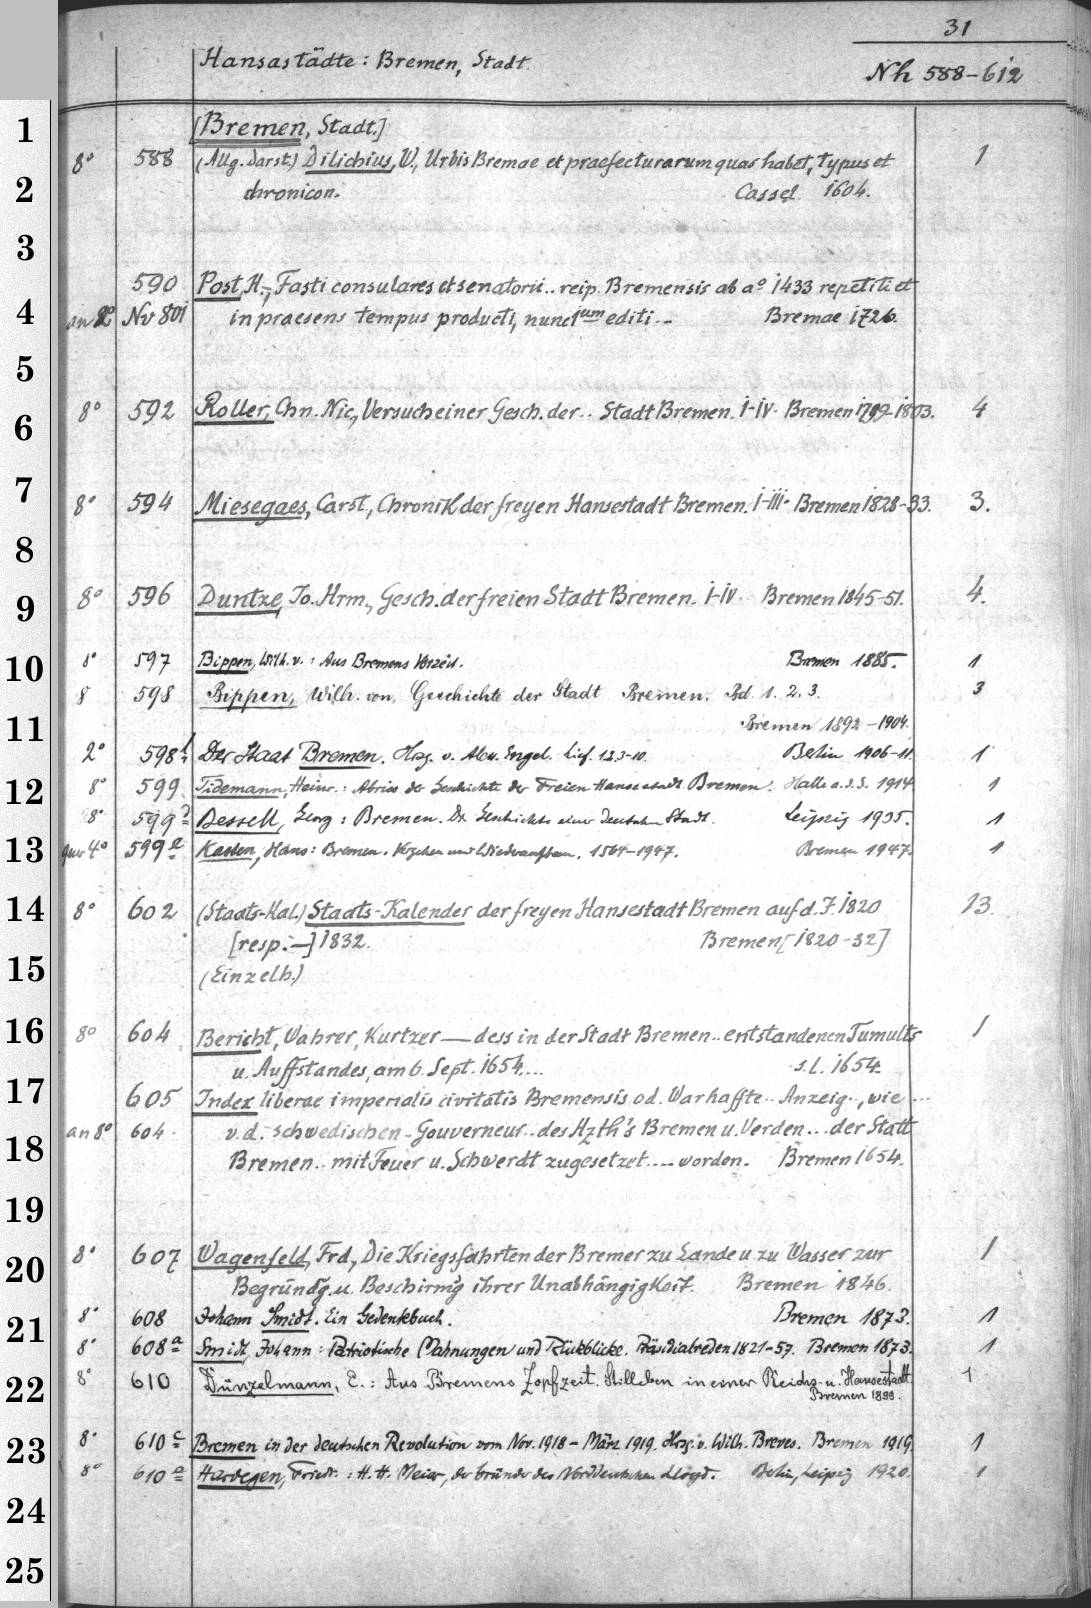 31
Hansastädte: Bremen, Stadt.
Nh 588-612
1
[Bremen, Stadt.]
8° 588 (Allg. Darst.) Dilichius, W., Urbis Bremae et praefecturarum quas habet, typus et 1
2 chronicon. Cassel. 1604.
3
590 Post, H., Fasti consulares et senatorii.. reip. Bremensis ab a° 1433 repetiti et
4 an 8° Nv 801 in praesens tempus producti, nunc 1um editi.- Bremae 1726.
5
8° 592 Roller, Chn. Nic., Versuch einer Gesch. der.. Stadt Bremen. I-IV. Bremen 1799-1803. 4
6
7
8° 594 Miesegaes, Carst., Chronik der freyen Hansestadt Bremen. I-III. Bremen 1828-33. 3.
8
8° 596 Duntze, Jo. Hrm., Gesch. der freien Stadt Bremen. I-IV. Bremen 1845-51. 4.
9
10 8° 597 Bippen, Wilh. v.: Aus Bremens Vorzeit. Bremen 1885. 1
8 598 Bippen, Wilh. von, Geschichte der Stadt Bremen. Bd. 1. 2. 3. 3
11 Bremen 1892-1904.
2° 598 Der Staat Bremen. Hrsg. v. Alex. Engel. Lief. 1.2.3-10. Berlin 1906-11. 1
12 8° 599 Tidemann, Heinr.: Abriss der Geschichte der Freien Hansestadt Bremen. Halle a.d.S. 1914. 1
8° 599 Bessell, Georg: Bremen. Die Geschichte einer deutschen Stadt. Leipzig 1935. 1
13 quer 4° 599e Kasten, Hans: Bremen. Vergehen und Wiederaufbau. 1564-1947. Bremen 1947. 1
14 8° 602 (Staats-Kal.) Staats-Kalender der freyen Hansestadt Bremen auf d. J. 1820 13.
[resp.-] 1832. Bremen [1820-32]
15 (Einzelh.)
16 8° 604 Bericht, Wahrer, Kurtzer — dess in der Stadt Bremen.. entstandenen Tumults 1
u. Auffstandes, am 6. Sept. 1654.... s.l. 1654.
17 605 Index liberae imperialis civitatis Bremensis od. Warhaffte.. Anzeig.., wie ...
an 8° 604. v. d. schwedischen.. Gouverneur.. des Hzth's Bremen u. Verden... der Statt
18 Bremen.. mit Feuer u. Schwerdt zugesetzet.... worden. Bremen 1654.
19
8° 607 Wagenfeld, Frd., Die Kriegsfahrten der Bremer zu Lande u zu Wasser zur 1
20 Begründg. u. Beschirmg ihrer Unabhängigkeit. Bremen 1846.
21 8° 608 Johann Smidt. Ein Gedenkbuch. Bremen 1873. 1
8° 608a Smidt, Johann: Patriotische Mahnungen und Rückblicke. Präsidialreden 1821-57. Bremen 1873. 1
22 8° 610 Dünzelmann, E.: Aus Bremens Zopfzeit. Stilleben in einer Reichs- u. Hansestadt. 1
Bremen 1899.
23 8° 610c Bremen in der deutschen Revolution vom Nov. 1918 - März 1919. Hrsg. v. Wilh. Breves. Bremen 1919. 1
8° 610e Hardegen, Friedr.: H. H. Meier, der Gründer des Norddeutschen Lloyd. Berlin, Leipzig 1920. 1
24
25